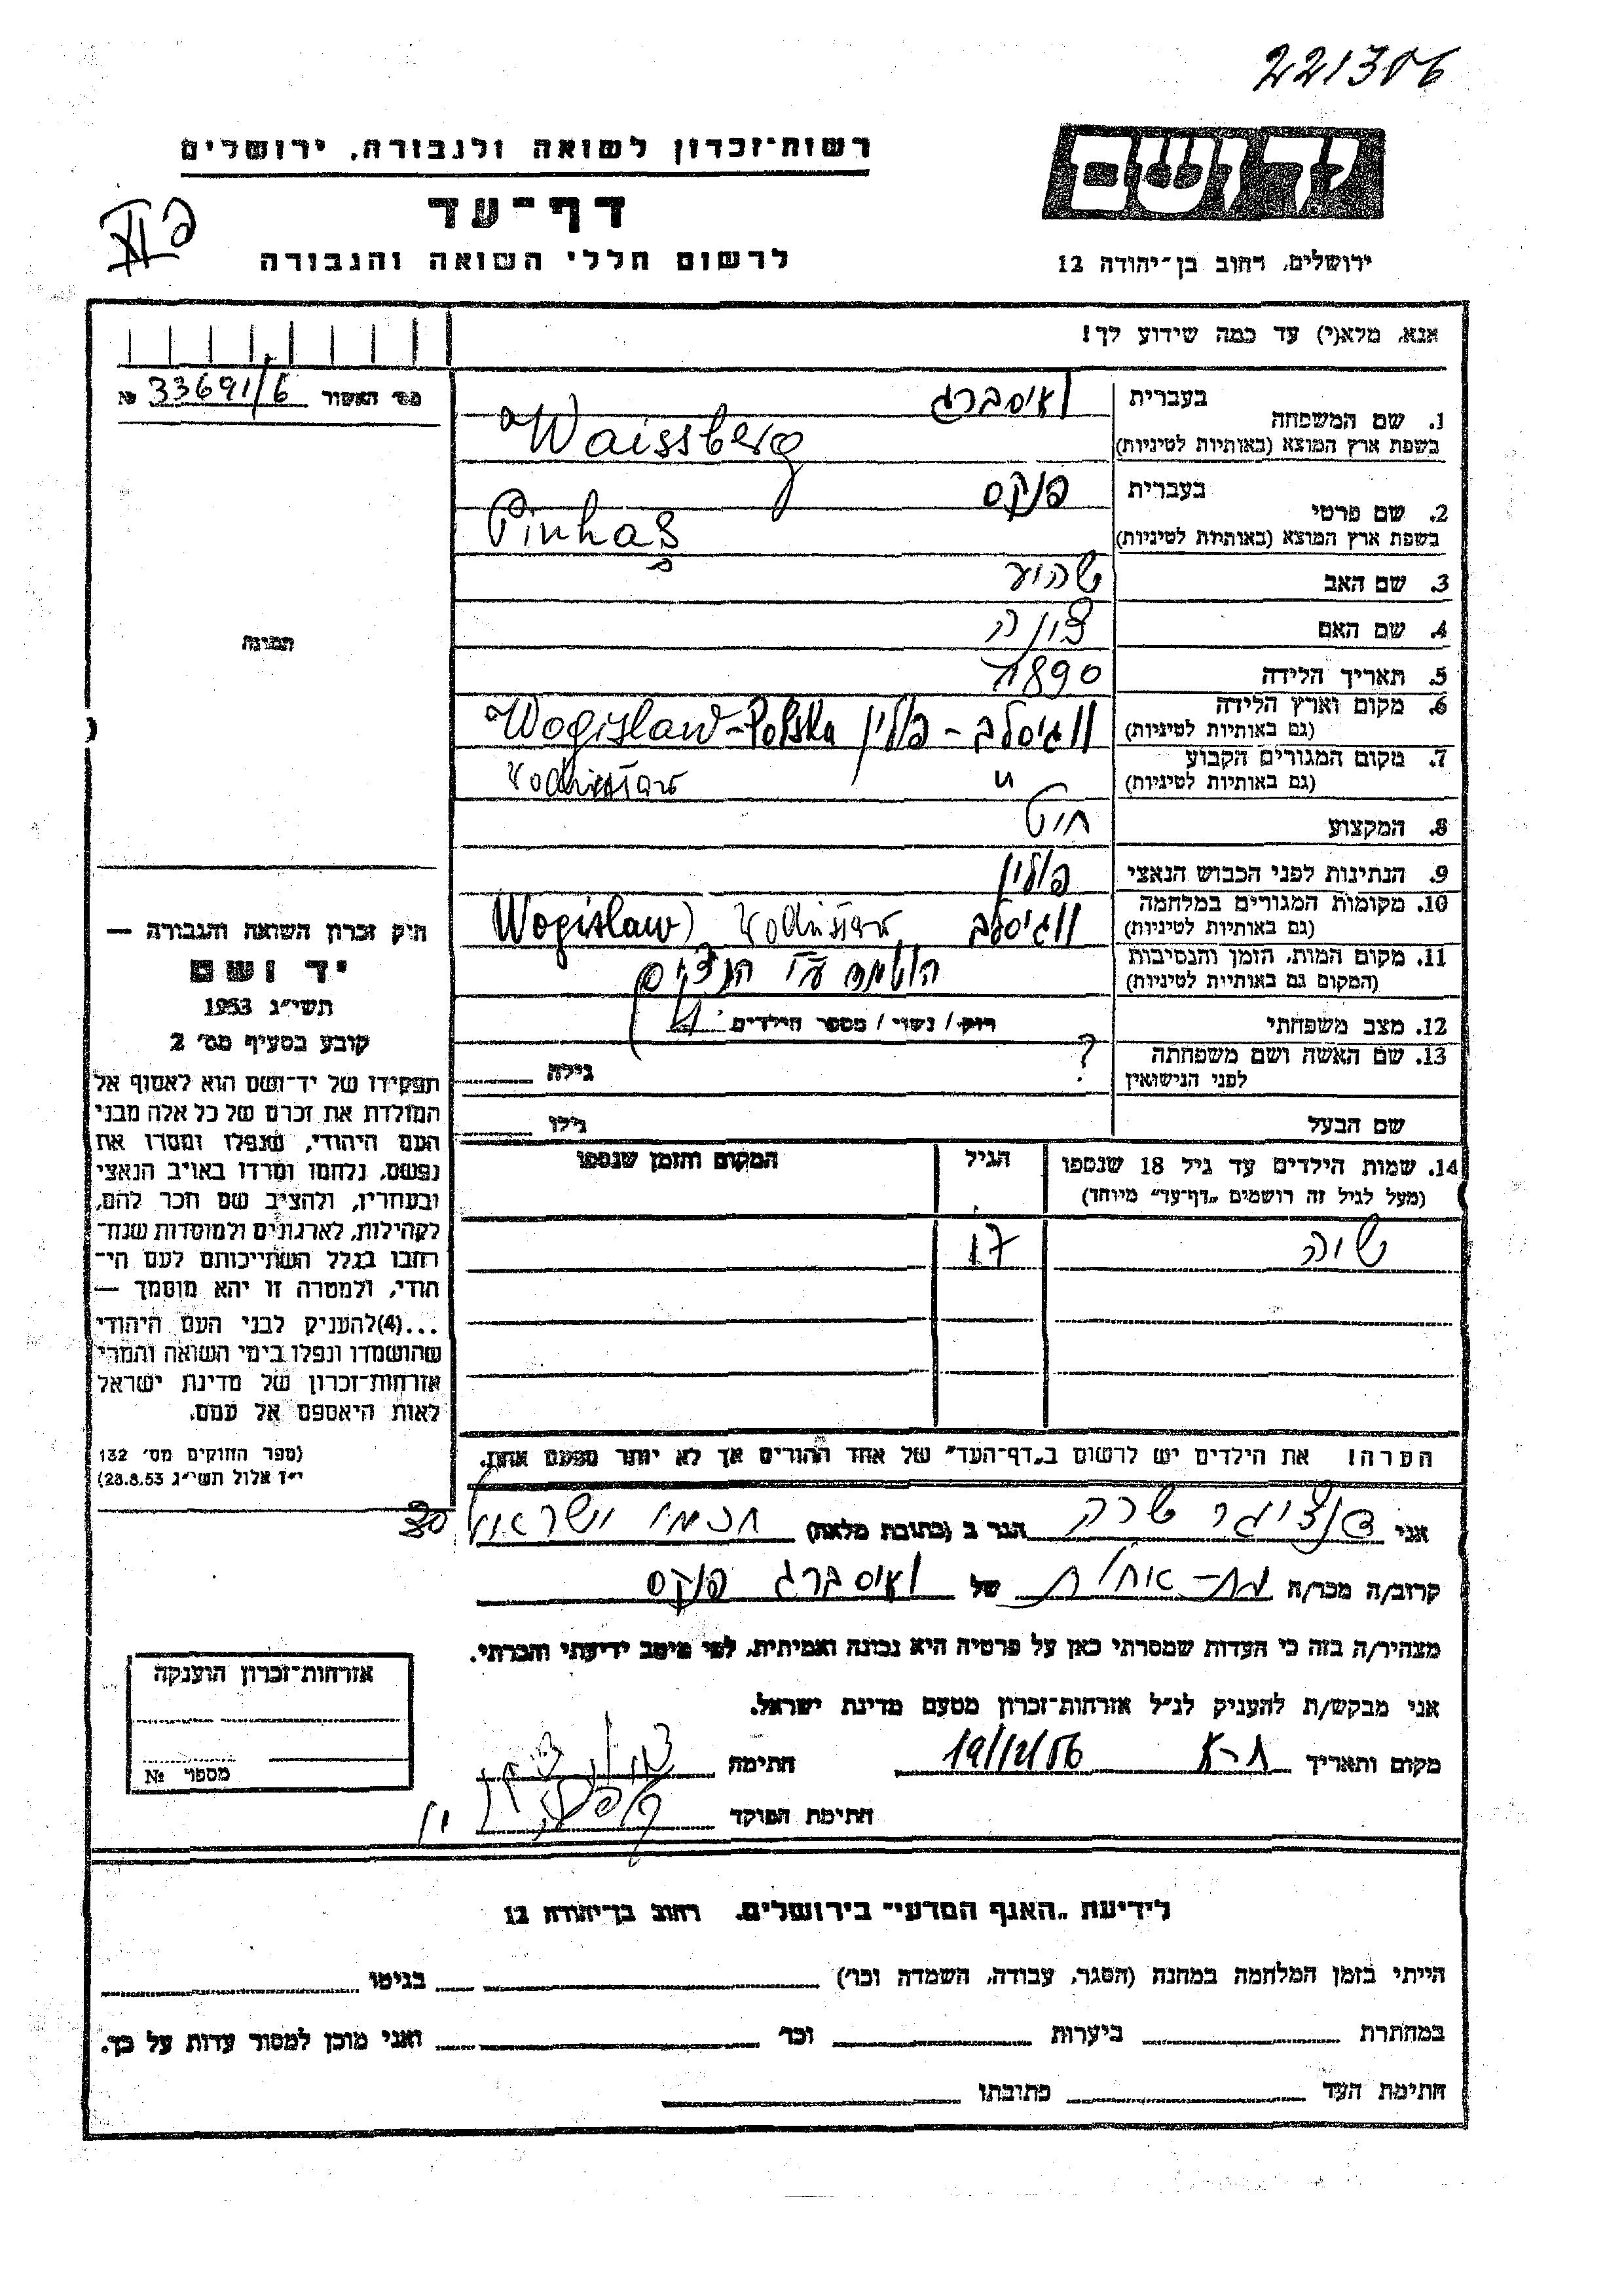 221306
רשות־זכרון לשואה ולגבורה, ירושלים
יד ושם
דף־עד
לרשום חללי השואה והגבורה
ירושלים, רחוב בן־יהודה 12
אנא, מלא(י) עד כמה שידוע לך!
מס' האשור 33691/6 №
1. שם המשפחה
בעברית
בשפת ארץ המוצא (באותיות לטיניות)
וייסברג
Waissberg
2. שם פרטי
בעברית
בשפת ארץ המוצא (באותיות לטיניות)
פנקס
Pinhas
3. שם האב
4. שם האם
5. תאריך הלידה 1890
6. מקום וארץ הלידה
(גם באותיות לטיניות)
ווגיסלב - פולין Wogislaw-Polska
7. מקום המגורים הקבוע
(גם באותיות לטיניות)
"
8. המקצוע חייט
9. הנתינות לפני הכבוש הנאצי פולין
10. מקומות המגורים במלחמה
(גם באותיות לטיניות)
ווגיסלב Wogislaw
11. מקום המות, הזמן והנסיבות
(המקום גם באותיות לטיניות)
הושמד ע"י הנצים
12. מצב משפחתי רווק / נשוי / מספר הילדים
13. שם האשה ושם משפחתה
לפני הנישואין
? גילה
שם הבעל גילו
14. שמות הילדים עד גיל 18 שנספו
(מעל לגיל זה רושמים „דף־עד" מיוחד)
הגיל
המקום והזמן שנספו
17
הערה! את הילדים יש לרשום ב„דף־העד" של אחד ההורים אך לא יותר מפעם אחת.
תמונה
חוק זכרון השואה והגבורה —
יד ושם
תשי"ג 1953
קובע בסעיף מס' 2
תפקידו של יד־ושם הוא לאסוף אל
המולדת את זכרם של כל אלה מבני
העם היהודי, שנפלו ומסרו את
נפשם, נלחמו ומרדו באויב הנאצי
ובעוזריו, ולהציב שם וזכר להם,
לקהילות, לארגונים ולמוסדות שנח־
רבו בגלל השתייכותם לעם הי־
הודי, ולמטרה זו יהא מוסמך —
...(4)להעניק לבני העם היהודי
שהושמדו ונפלו בימי השואה והמרי
אזרחות־זכרון של מדינת ישראל
לאות היאספם אל עמם.
(ספר החוקים מס' 132
י"ז אלול תשי"ג 28.8.53)
אני דנציגר שרה הגר ב (כתובת מלאה) חכמי ישראל 30
קרוב/ה מכר/ה בת-אחות של וייסברג פנקס
מצהיר/ה בזה כי העדות שמסרתי כאן על פרטיה היא נכונה ואמיתית, לפי מיטב ידיעתי והכרתי.
אני מבקש/ת להעניק לנ"ל אזרחות־זכרון מטעם מדינת ישראל.
מקום ותאריך 19/12/56 חתימה
חתימת הפוקד
אזרחות־זכרון הוענקה
מספר №
לידיעת „האגף המדעי" בירושלים, רחוב בן־יהודה 12
הייתי בזמן המלחמה במחנה (הסגר, עבודה, השמדה וכו') בגיטו
במחתרת ביערות וכו' ואני מוכן למסור עדות על כך.
חתימת העד כתובתו